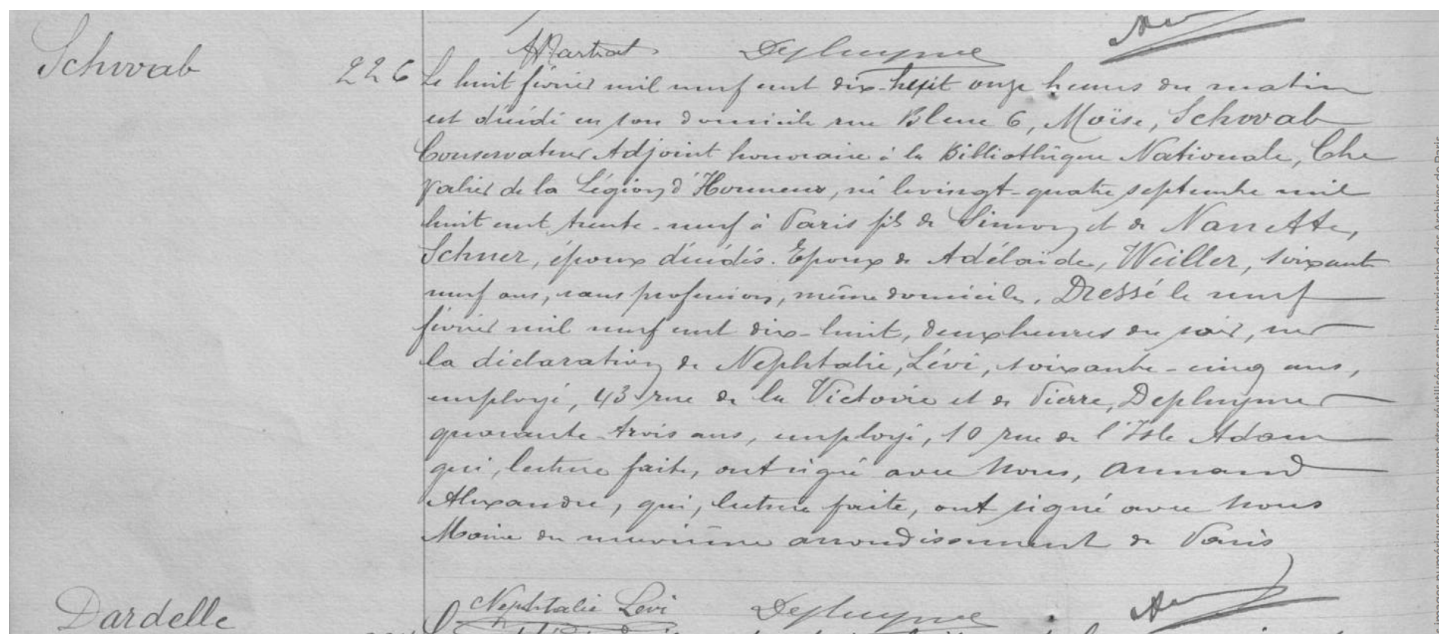 Martrat Depluyme
Schwab 226 Le huit février mil neuf cent dix-huit onze heures du matin
est décédé en son domicile rue Bleue 6, Moïse, Schwab
Conservateur Adjoint honoraire à la Bibliothèque Nationale, Che
valier de la Légion d'Honneur, né le vingt-quatre septembre mil
huit cent trente-neuf à Paris fils de Simon et de Nanette,
Schner, époux décédés. Epoux de Adélaïde, Weiller, soixante
neuf ans, sans profession, même domicile. Dressé le neuf
février mil neuf cent dix-huit, deux heures du soir, sur
la déclaration de Nephtalie, Lévi, soixante-cinq ans,
employé, 43 rue de la Victoire et de Pierre, Depluyme
quarante-trois ans, employé, 10 rue de l'Isle Adam
qui, lecture faite, ont signé avec Nous, Armand
Alexandre, qui, lecture faite, ont signé avec Nous
Maire du neuvième arrondissement de Paris
Nephtalie Levi Depluyme
Dardelle